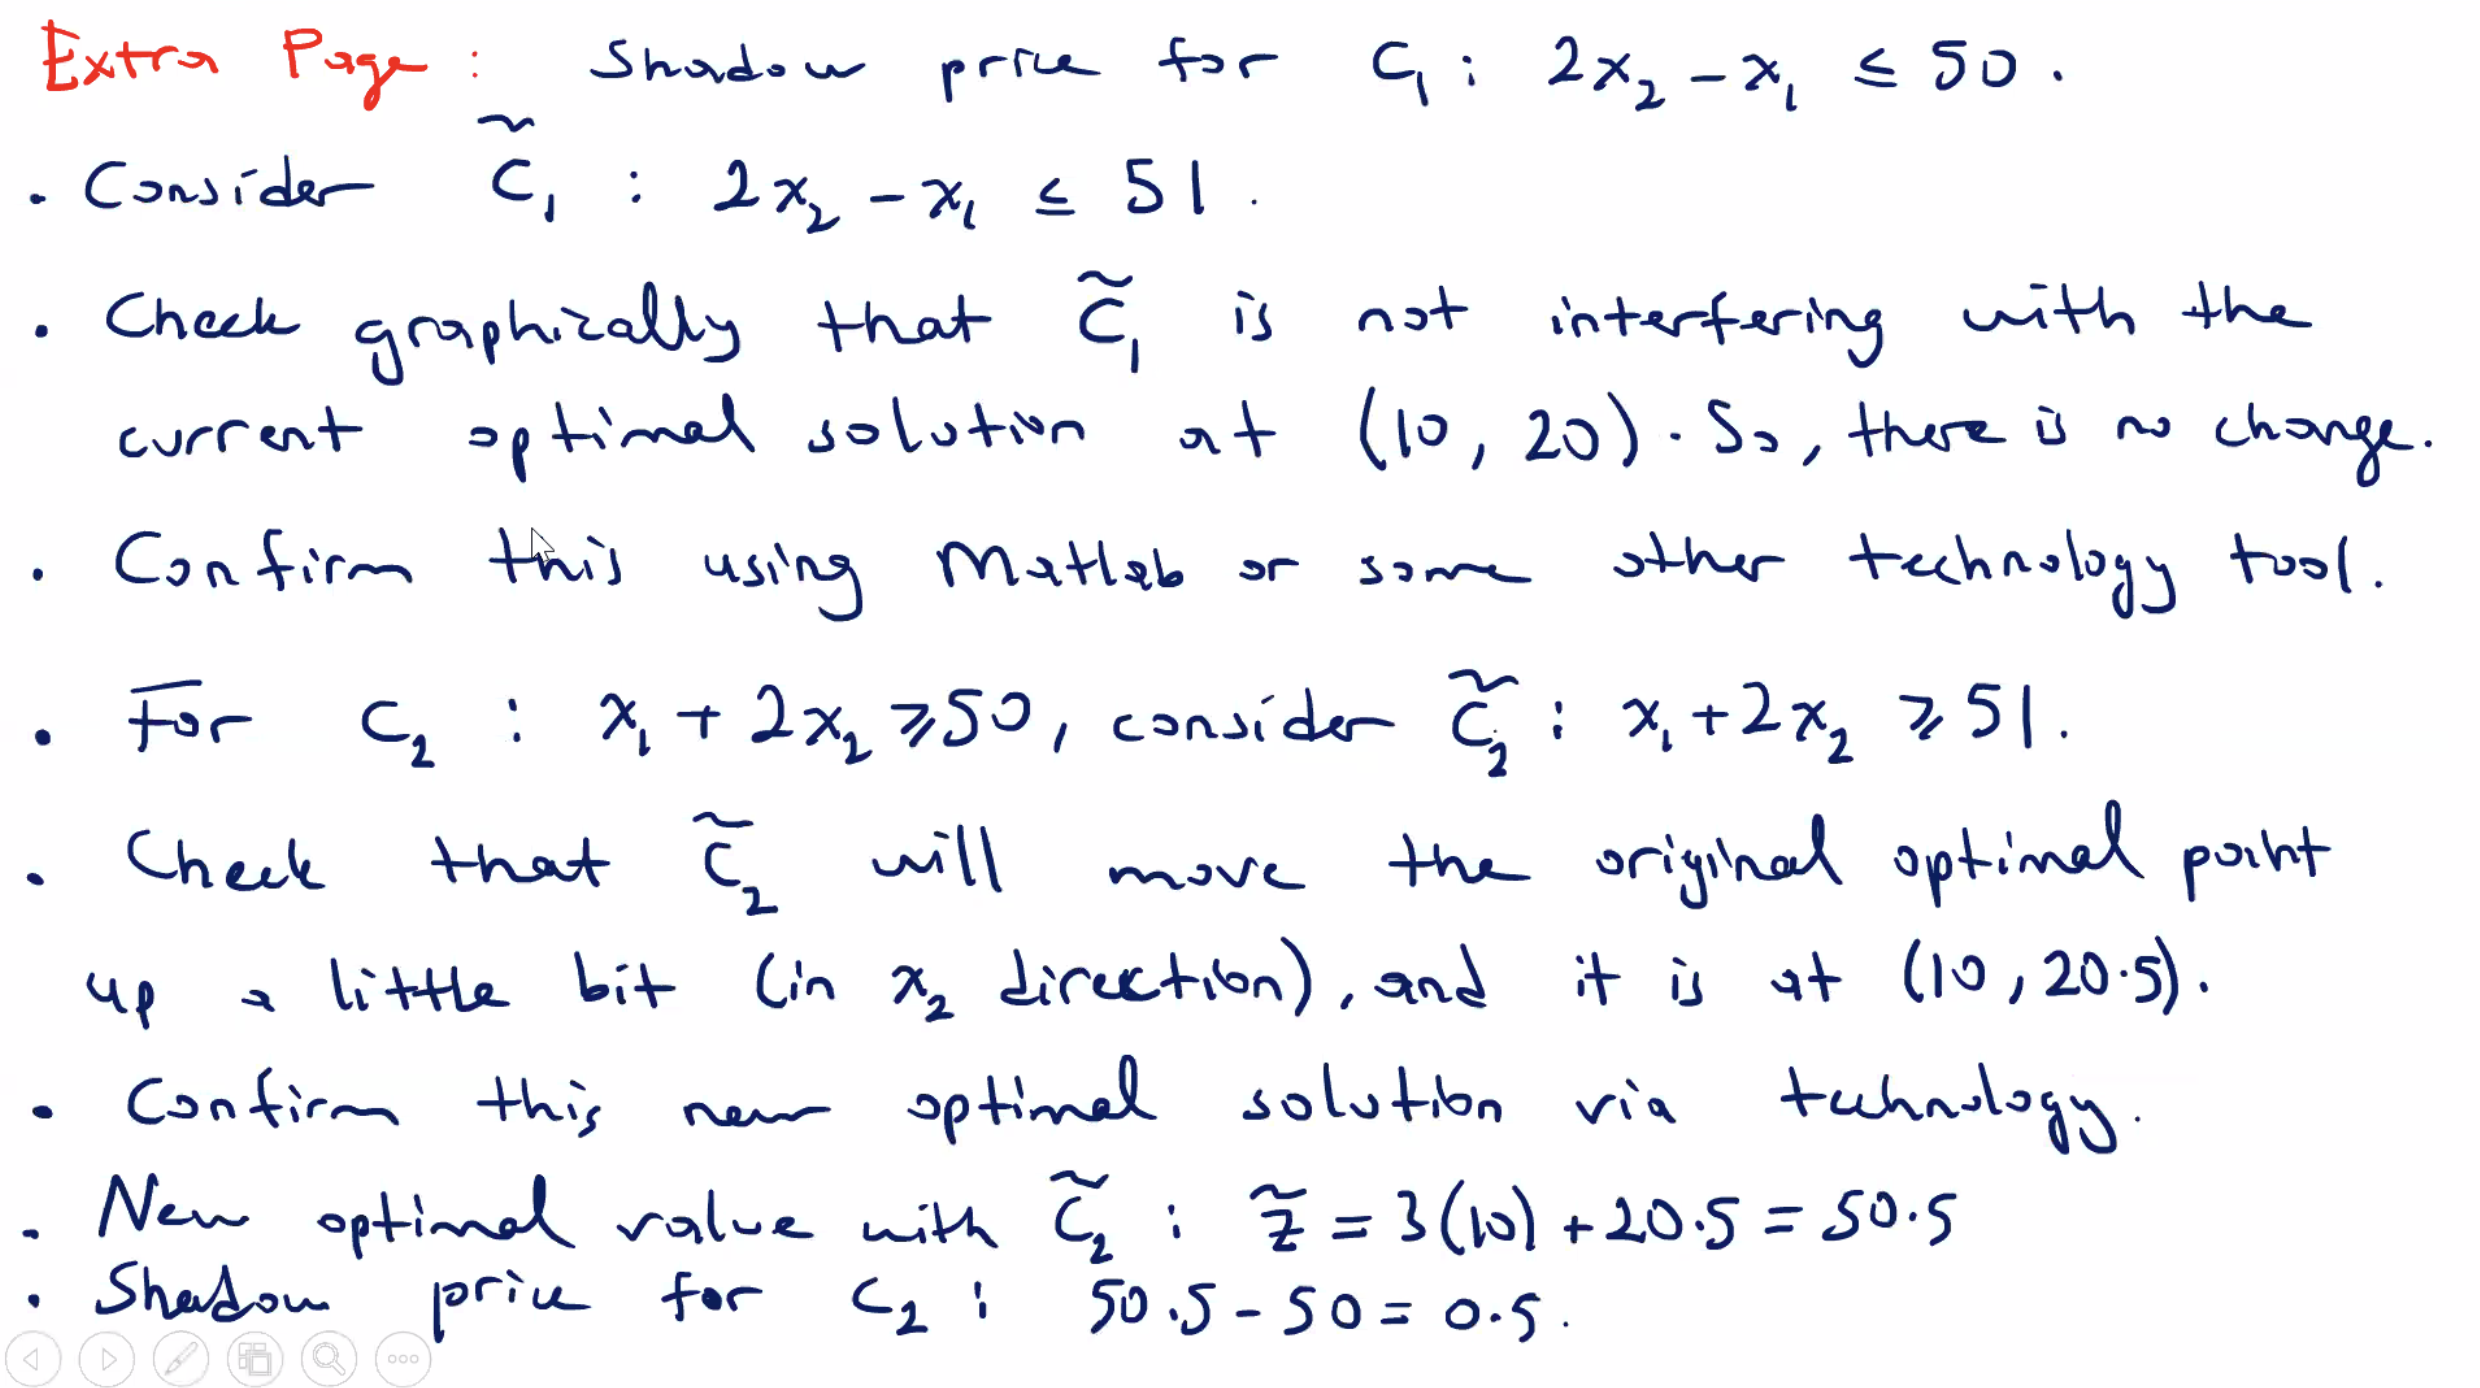 Extra Page : Shadow price for C₁ : 2x₂ - x₁ ≤ 50.
. Consider C̃₁ : 2x₂ - x₁ ≤ 51.
. Check graphically that C̃₁ is not interfering with the
current optimal solution at (10, 20). So, there is no change.
. Confirm this using Matlab or some other technology tool.
. For C₂ : x₁ + 2x₂ ⩾ 50, consider C̃₂ : x₁ + 2x₂ ⩾ 51.
. Check that C̃₂ will move the original optimal point
up a little bit (in x₂ direction), and it is at (10, 20.5).
. Confirm this new optimal solution via technology.
. New optimal value with C̃₂ : z̃ = 3(10) + 20.5 = 50.5
. Shadow price for C₂ : 50.5 - 50 = 0.5.